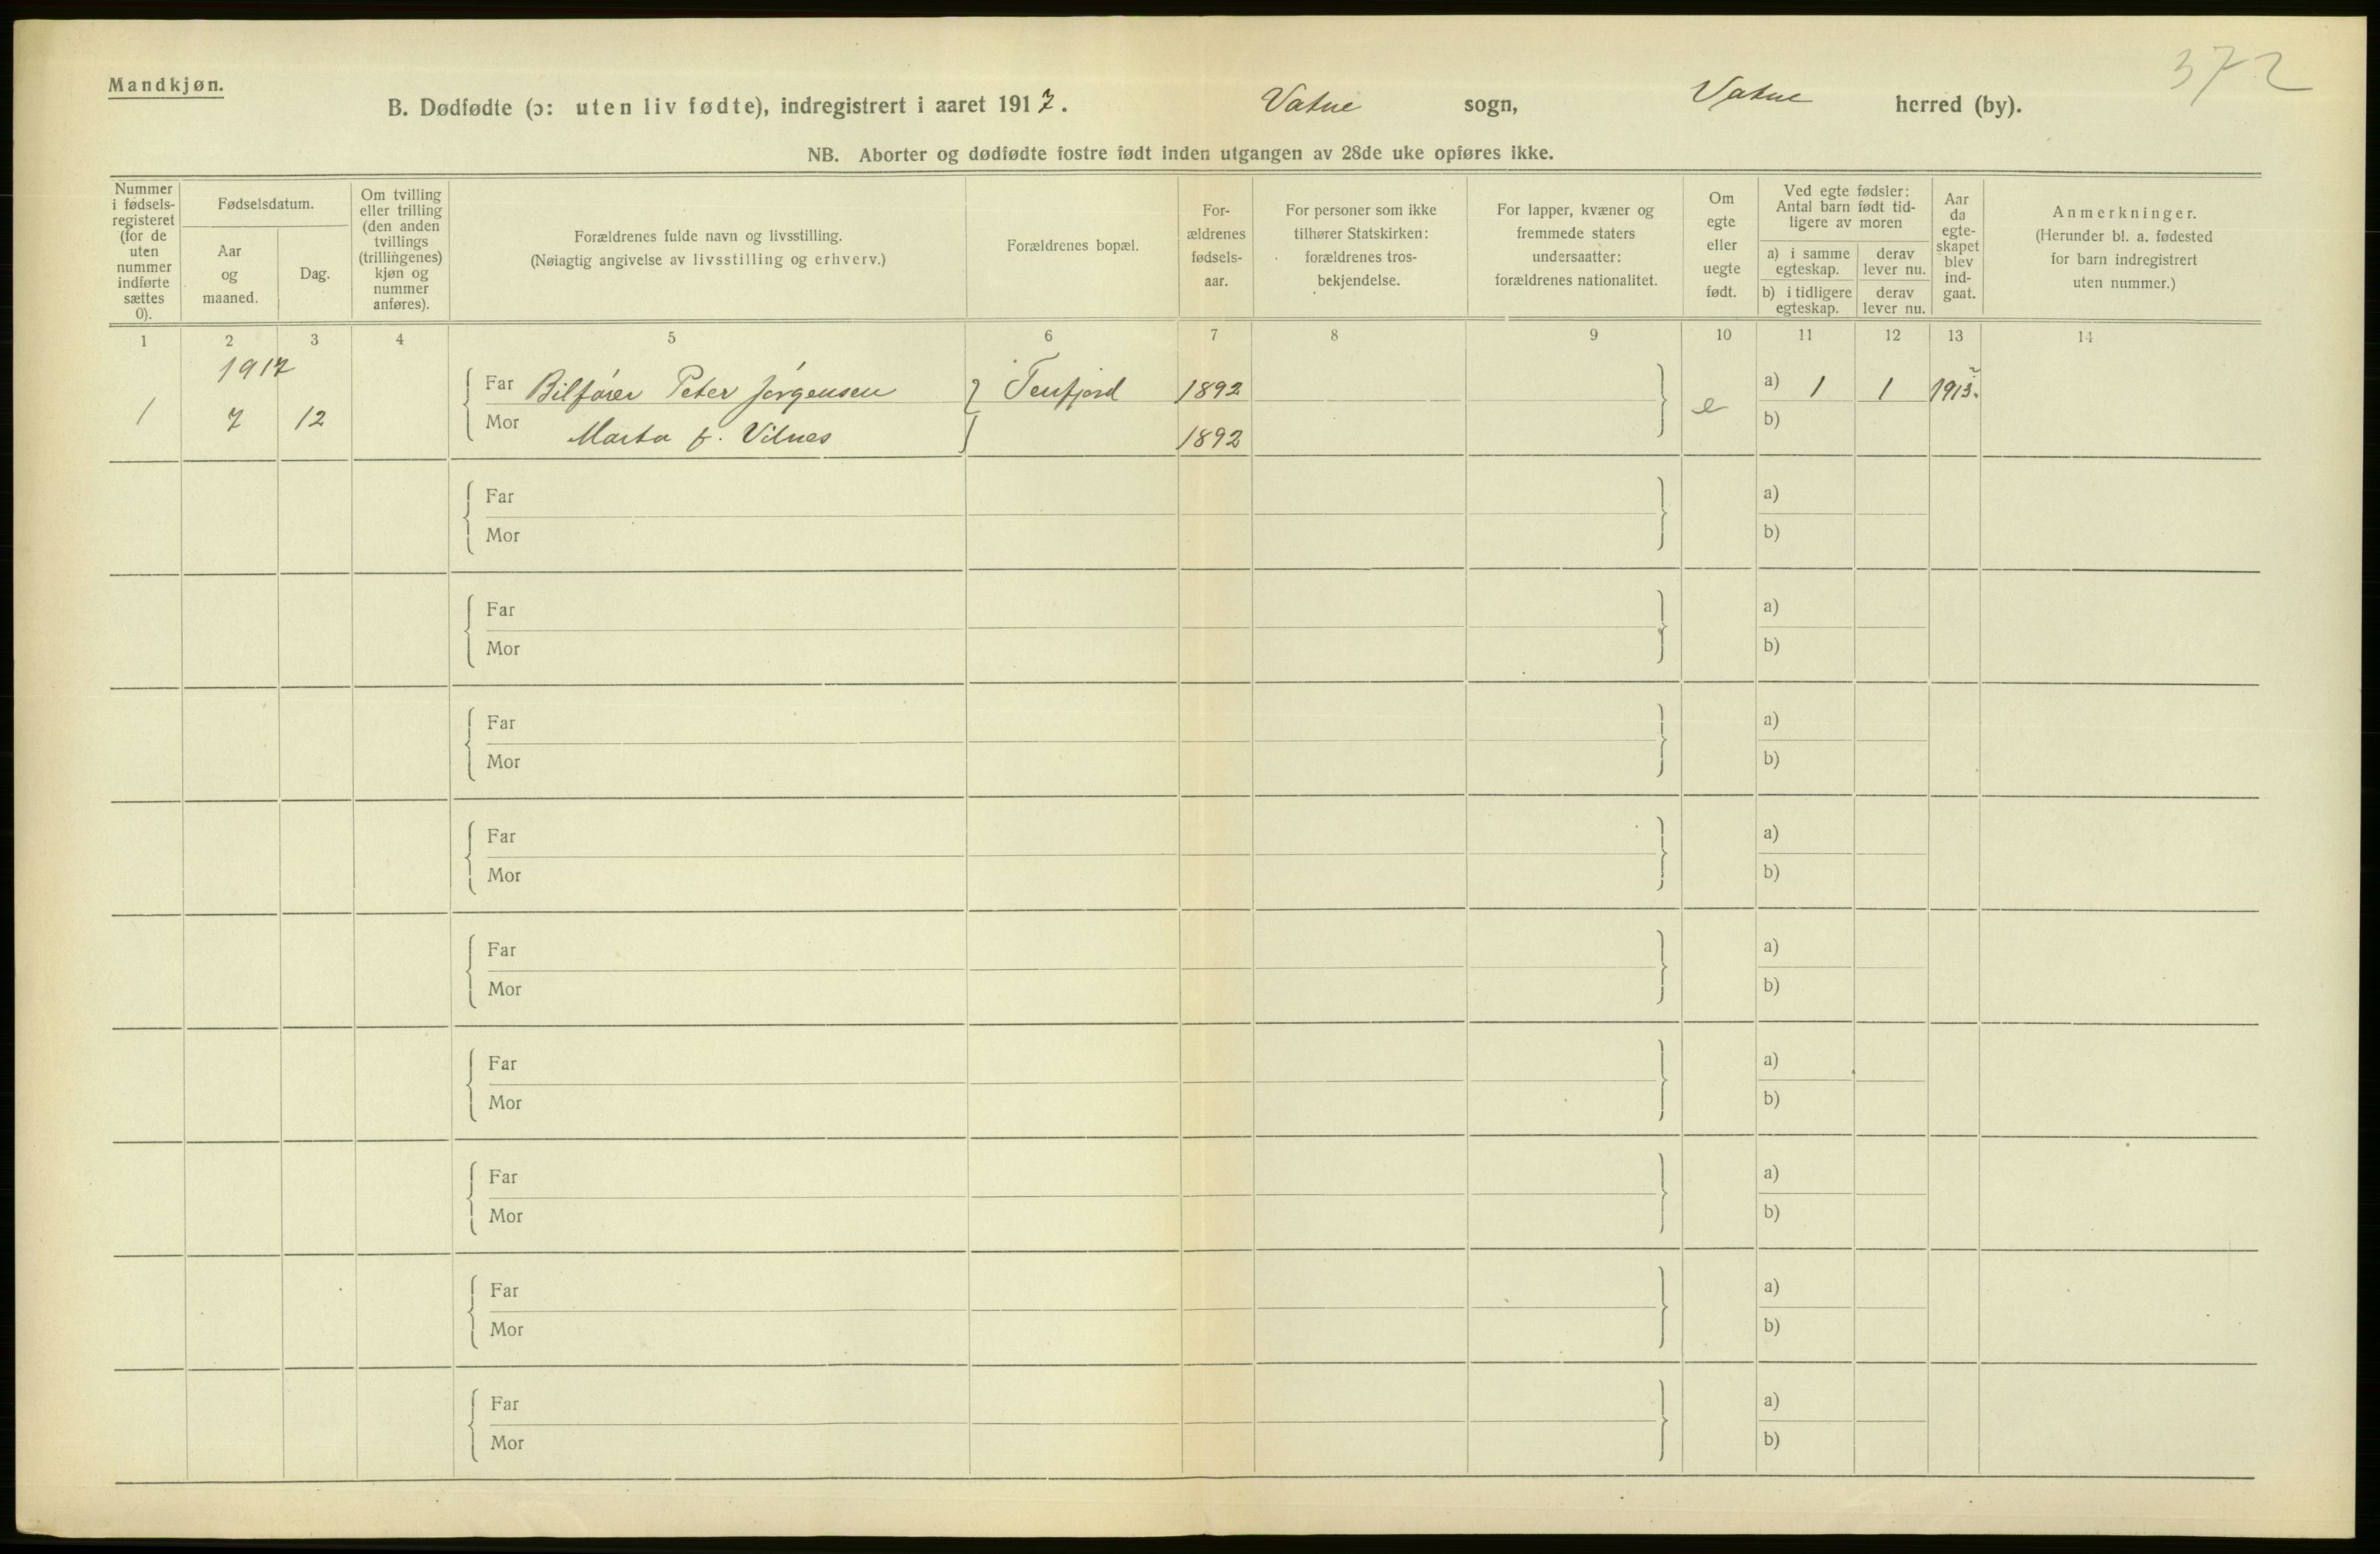 372
Mandkjøn.
B. Dødfødte (ɔ: uten liv fødte), indregistrert i aaret 1917. Vatne sogn, Vatne herred (by).
NB. Aborter og dødfødte fostre født inden utgangen av 28de uke opføres ikke.
Nummer i fødsels-registeret (for de uten nummer indførte sættes 0).
Fødselsdatum.
Aar og maaned.
Dag.
Om tvilling eller trilling (den anden tvillings (trillingenes) kjøn og nummer anføres).
Forældrenes fulde navn og livsstilling.
(Nøiagtig angivelse av livsstilling og erhverv.)
Forældrenes bopæl.
For-ældrenes fødsels-aar.
For personer som ikke tilhører Statskirken: forældrenes tros-bekjendelse.
For lapper, kvæner og fremmede staters undersaatter: forældrenes nationalitet.
Om egte eller uegte født.
Ved egte fødsler: Antal barn født tid-ligere av moren
a) i samme egteskap.
derav lever nu.
b) i tidligere egteskap.
derav lever nu.
Aar da egte-skapet blev ind-gaat.
Anmerkninger.
(Herunder bl. a. fødested for barn indregistrert uten nummer.)
1 2 3 4 5 6 7 8 9 10 11 12 13 14
1917
1 7 12
Far Bilfører Peter Jørgensen Tenfjord 1892 e a) 1 1 1913.
Mor Marta f. Vilnes 1892 b)
Far a)
Mor b)
Far a)
Mor b)
Far a)
Mor b)
Far a)
Mor b)
Far a)
Mor b)
Far a)
Mor b)
Far a)
Mor b)
Far a)
Mor b)
Far a)
Mor b)